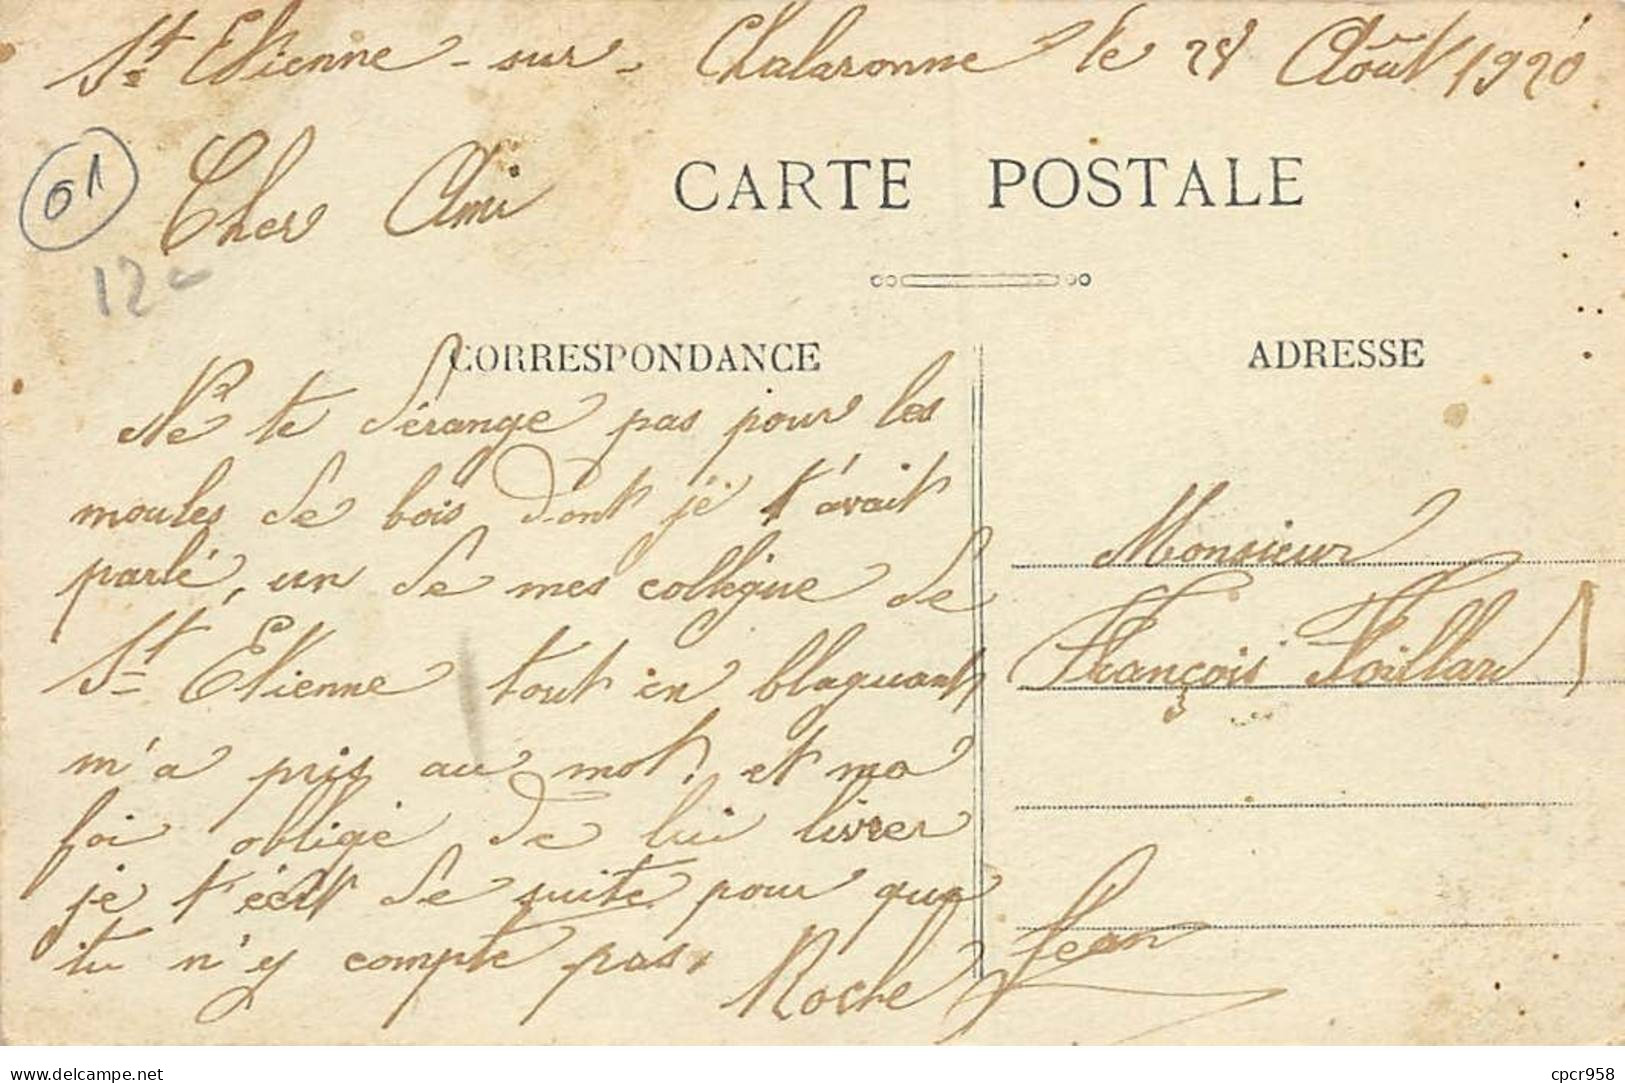 St Etienne - sur - Chalaronne le 28 Août 1920
01
Cher Ami
CARTE POSTALE
12
CORRESPONDANCE
ADRESSE
Ne te dérange pas pour les
moules de bois dont je t'avait
parlé, un de mes collègue de
St Etienne tout en blaguant
m'a pris au mot, et ma
foi obligé de lui livrer
je t'écrit de suite pour que
tu n'y compte pas.
Roche Jean
Monsieur
François Foillard
delcampe.net
cpcr958